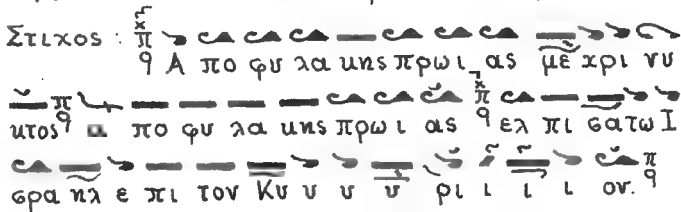 Στιχος : π ϥ Α πο φυ λα κης πρωι ας με χρι νυ
κτος π ϥ α πο φυ λα κης πρωι ας π ϥ ελ πι σατω Ι
σρα ηλ ε πι τον Κυ υ υ υ ρι ι ι ι ον. π ϥ